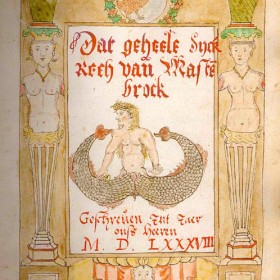 Dat geheele Dyck
Rech van Maste
brock
Geschreuen Int Jaer
onß Heren
M. D. LXXXVIII